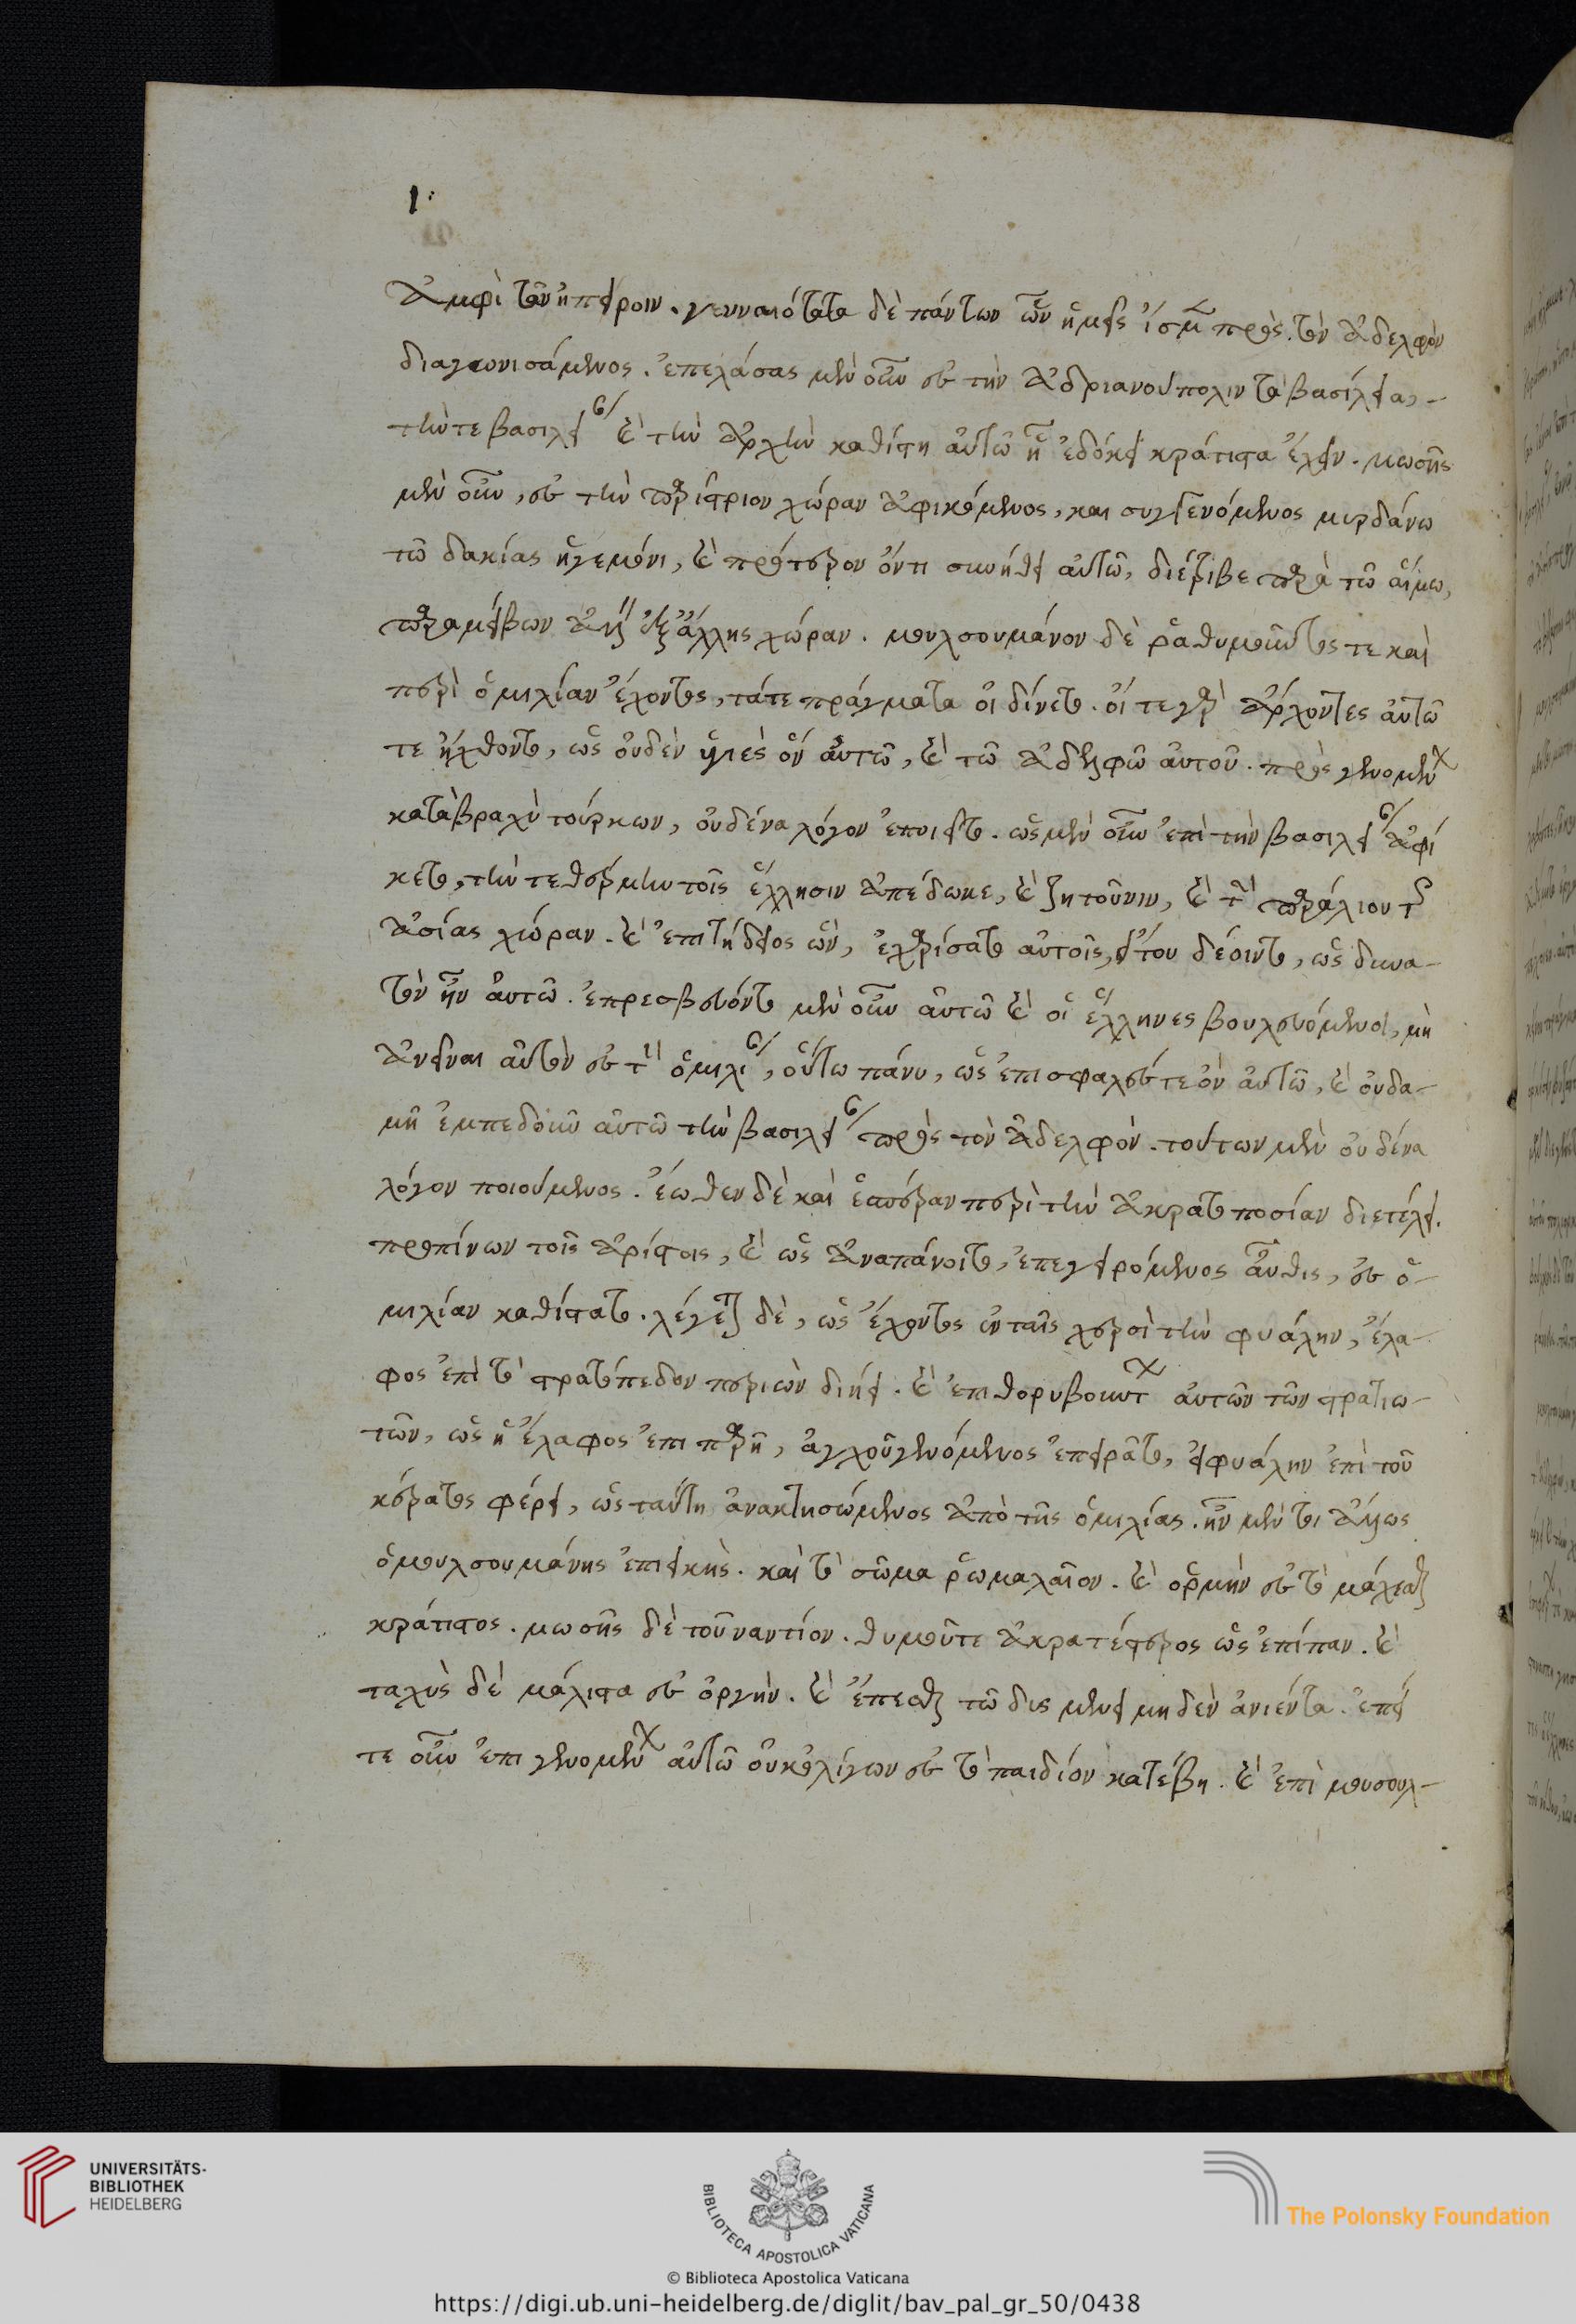 ἀμφὶ τὴν ἤπειρον. γενναιότατα δὲ πάντων ὧν ἡμεῖς ἴσμεν πρὸς τὸν ἀδελφὸν
διαγωνισάμενος. ἐπελάσας μὲν οὖν εἰς τὴν ἀδριανούπολιν τὰ βασίλεια,
τήν τε βασιλείαν καὶ τὴν ἀρχὴν καθίστη αὐτῷ ᾗ ἐδόκει κράτιστα ἔχειν. μωσῆς
μὲν οὖν, εἰς τὴν παρίστριον χώραν ἀφικόμενος, και συγγενόμενος μυρδάνω
τῷ δακίας ἡγεμόνι, καὶ πρότερον ὄντι συνήθει αὐτῷ, διέτριβε παρὰ τῷ αἵμω,
παραμείβων ἄλλην ἐξ ἄλλης χώραν. μουλσουμάνου δὲ ῥαθυμοῦντος τε καὶ
περὶ ὁμιλίαν ἔχοντος, τάτε πράγματα οἱ δίνετο. οἵ τε γὰρ ἄρχοντες αὐτῷ
τε ἤχθοντο, ὡς οὐδὲν ὑγιὲς ὂν αὐτῷ, καὶ τῷ ἀδελφῷ αὐτοῦ. πρὸς γενομένων
κατὰβραχὺ τούρκων, οὐδένα λόγον ἐποιεῖτο. ὡς μὲν οὖν ἐπὶ τὴν βασιλείαν ἀφί
κετο, τήν τε θέρμην τοῖς ἕλλησιν ἀπέδωκε, καὶ ζητοῦνιν, καὶ τὴν παράλιον τῆς
ἀσίας χώραν. καὶ ἐπιτήδειος ὢν, ἐχαρίσατο αὐτοῖς, εἴ του δέοιντο, ὡς δυνα-
τὸν ἦν αὐτῷ. ἐπρεσβεύοντο μὲν οὖν αὐτῷ καὶ οἱ ἕλληνες βουλευόμενοι, μὴ
ἀνεῖναι αὑτὸν εἰς τὴν ὁμιλίαν, οὕτω πάνυ, ὡς ἐπισφαλές τε ὂν αὐτῷ, καὶ οὐδα-
μῆ ἐμπεδοῦν αὐτῷ τὴν βασιλείαν πρὸς τὸν ἀδελφὸν. τούτων μὲν οὐδένα
λόγον ποιούμενος. ἕωθεν δὲ καὶ ἑσπέραν περὶ τὴν ἀκρατοποσίαν διετέλει.
προπίνων τοῖς ἀρίστοις, καὶ ὡς ἀναπάυοιτο, ἐπεγειρόμενος αὖθις, εἰς ὁ-
μιλίαν καθίστατο. λέγεται δὲ, ὡς ἔχοντος ἐν ταῖς χερσὶ τὴν φυάλην, ἔλα-
φος ἐπὶ τὸ στρατόπεδον περιιὼν διῄει. καὶ ἐπιθορυβούντων αὐτῶν τῶν στρατιω-
τῶν, ὡς ἡ ἔλαφος ἐπιπαρῇ, ἀγχοῦ γενόμενος ἐπειρᾶτο, εἰ φυάλην ἐπὶ τοῦ
κέρατος φέρει, ὡς ταύτη ἀνακτησώμενος ἀπὸ τῆς ὁμιλίας. ἦν μέν τι ἄλλως
ὁ μουλσουμάνης ἐπιεικὴς. καὶ τὸ σῶμα ῥωμαλαῖον. καὶ ὁρμὴν εἰς τὸ μάχεσθαι
κράτιστος. μωσῆς δὲ τοὐναντίον. θυμοῦτε ἀκρατέστερος ὡς ἐπίπαν. καὶ
ταχὺς δὲ μάλιστα εἰς ὀργὴν. καὶ ἕπεσθαι τῷ δυσμενεῖ μηδὲν ἀνιέντα. ἐπεί
τε οὖν ἐπιγενομένων αὐτῷ οὐκ ὀλίγων εἰς τὸ παιδίον κατέβη. καὶ ἐπὶ μουσουλ-
UNIVERSITÄTS-
BIBLIOTHEK
HEIDELBERG
BIBLIOTECA APOSTOLICA VATICANA
The Polonsky Foundation
© Biblioteca Apostolica Vaticana
https://digi.ub.uni-heidelberg.de/diglit/bav_pal_gr_50/0438